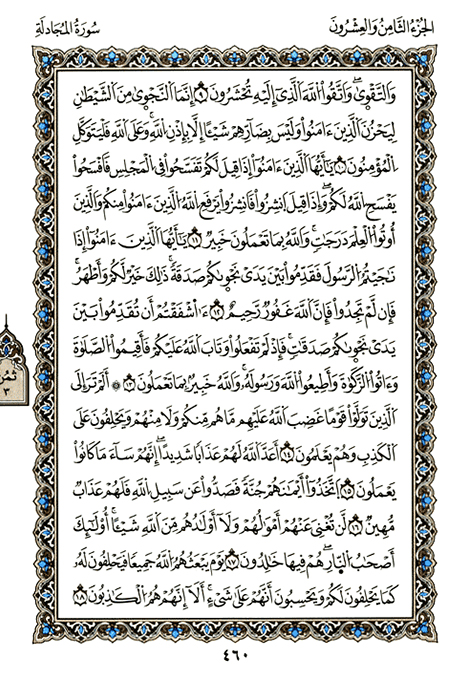 الجُزْءُ الثَّامِنُ وَالعِشْرُونَ
سُورَةُ المُجَادلَة
وَالتَّقْوَىٰۖ وَاتَّقُوا۟ اللَّهَ الَّذِىٓ إِلَيْهِ تُحْشَرُونَ ٩ إِنَّمَا النَّجْوَىٰ مِنَ الشَّيْطَٰنِ
لِيَحْزُنَ الَّذِينَ ءَامَنُوا۟ وَلَيْسَ بِضَآرِّهِمْ شَيْـًٔا إِلَّا بِإِذْنِ اللَّهِۚ وَعَلَى اللَّهِ فَلْيَتَوَكَّلِ
الْمُؤْمِنُونَ ١٠ يَٰٓأَيُّهَا الَّذِينَ ءَامَنُوٓا۟ إِذَا قِيلَ لَكُمْ تَفَسَّحُوا۟ فِى الْمَجْلِسِ فَافْسَحُوا۟
يَفْسَحِ اللَّهُ لَكُمْۖ وَإِذَا قِيلَ انشِزُوا۟ فَانشِزُوا۟ يَرْفَعِ اللَّهُ الَّذِينَ ءَامَنُوا۟ مِنكُمْ وَالَّذِينَ
أُوتُوا۟ الْعِلْمَ دَرَجَٰتٍۚ وَاللَّهُ بِمَا تَعْمَلُونَ خَبِيرٌ ١١ يَٰٓأَيُّهَا الَّذِينَ ءَامَنُوٓا۟ إِذَا
نَٰجَيْتُمُ الرَّسُولَ فَقَدِّمُوا۟ بَيْنَ يَدَىْ نَجْوَىٰكُمْ صَدَقَةًۚ ذَٰلِكَ خَيْرٌ لَّكُمْ وَأَطْهَرُۚ
فَإِن لَّمْ تَجِدُوا۟ فَإِنَّ اللَّهَ غَفُورٌ رَّحِيمٌ ١٢ ءَأَشْفَقْتُمْ أَن تُقَدِّمُوا۟ بَيْنَ
يَدَىْ نَجْوَىٰكُمْ صَدَقَٰتٍۚ فَإِذْ لَمْ تَفْعَلُوا۟ وَتَابَ اللَّهُ عَلَيْكُمْ فَأَقِيمُوا۟ الصَّلَوٰةَ
وَءَاتُوا۟ الزَّكَوٰةَ وَأَطِيعُوا۟ اللَّهَ وَرَسُولَهُۥۚ وَاللَّهُ خَبِيرٌۢ بِمَا تَعْمَلُونَ ١٣ ۞ أَلَمْ تَرَ إِلَى
الَّذِينَ تَوَلَّوْا۟ قَوْمًا غَضِبَ اللَّهُ عَلَيْهِم مَّا هُم مِّنكُمْ وَلَا مِنْهُمْ وَيَحْلِفُونَ عَلَى
الْكَذِبِ وَهُمْ يَعْلَمُونَ ١٤ أَعَدَّ اللَّهُ لَهُمْ عَذَابًا شَدِيدًاۖ إِنَّهُمْ سَآءَ مَا كَانُوا۟
يَعْمَلُونَ ١٥ اتَّخَذُوٓا۟ أَيْمَٰنَهُمْ جُنَّةً فَصَدُّوا۟ عَن سَبِيلِ اللَّهِ فَلَهُمْ عَذَابٌ
مُّهِينٌ ١٦ لَّن تُغْنِىَ عَنْهُمْ أَمْوَٰلُهُمْ وَلَآ أَوْلَٰدُهُم مِّنَ اللَّهِ شَيْـًٔاۚ أُو۟لَٰٓئِكَ
أَصْحَٰبُ النَّارِۖ هُمْ فِيهَا خَٰلِدُونَ ١٧ يَوْمَ يَبْعَثُهُمُ اللَّهُ جَمِيعًا فَيَحْلِفُونَ لَهُۥ
كَمَا يَحْلِفُونَ لَكُمْ وَيَحْسَبُونَ أَنَّهُمْ عَلَىٰ شَىْءٍۚ أَلَآ إِنَّهُمْ هُمُ الْكَٰذِبُونَ ١٨
ثمن
٣
٤٦٠